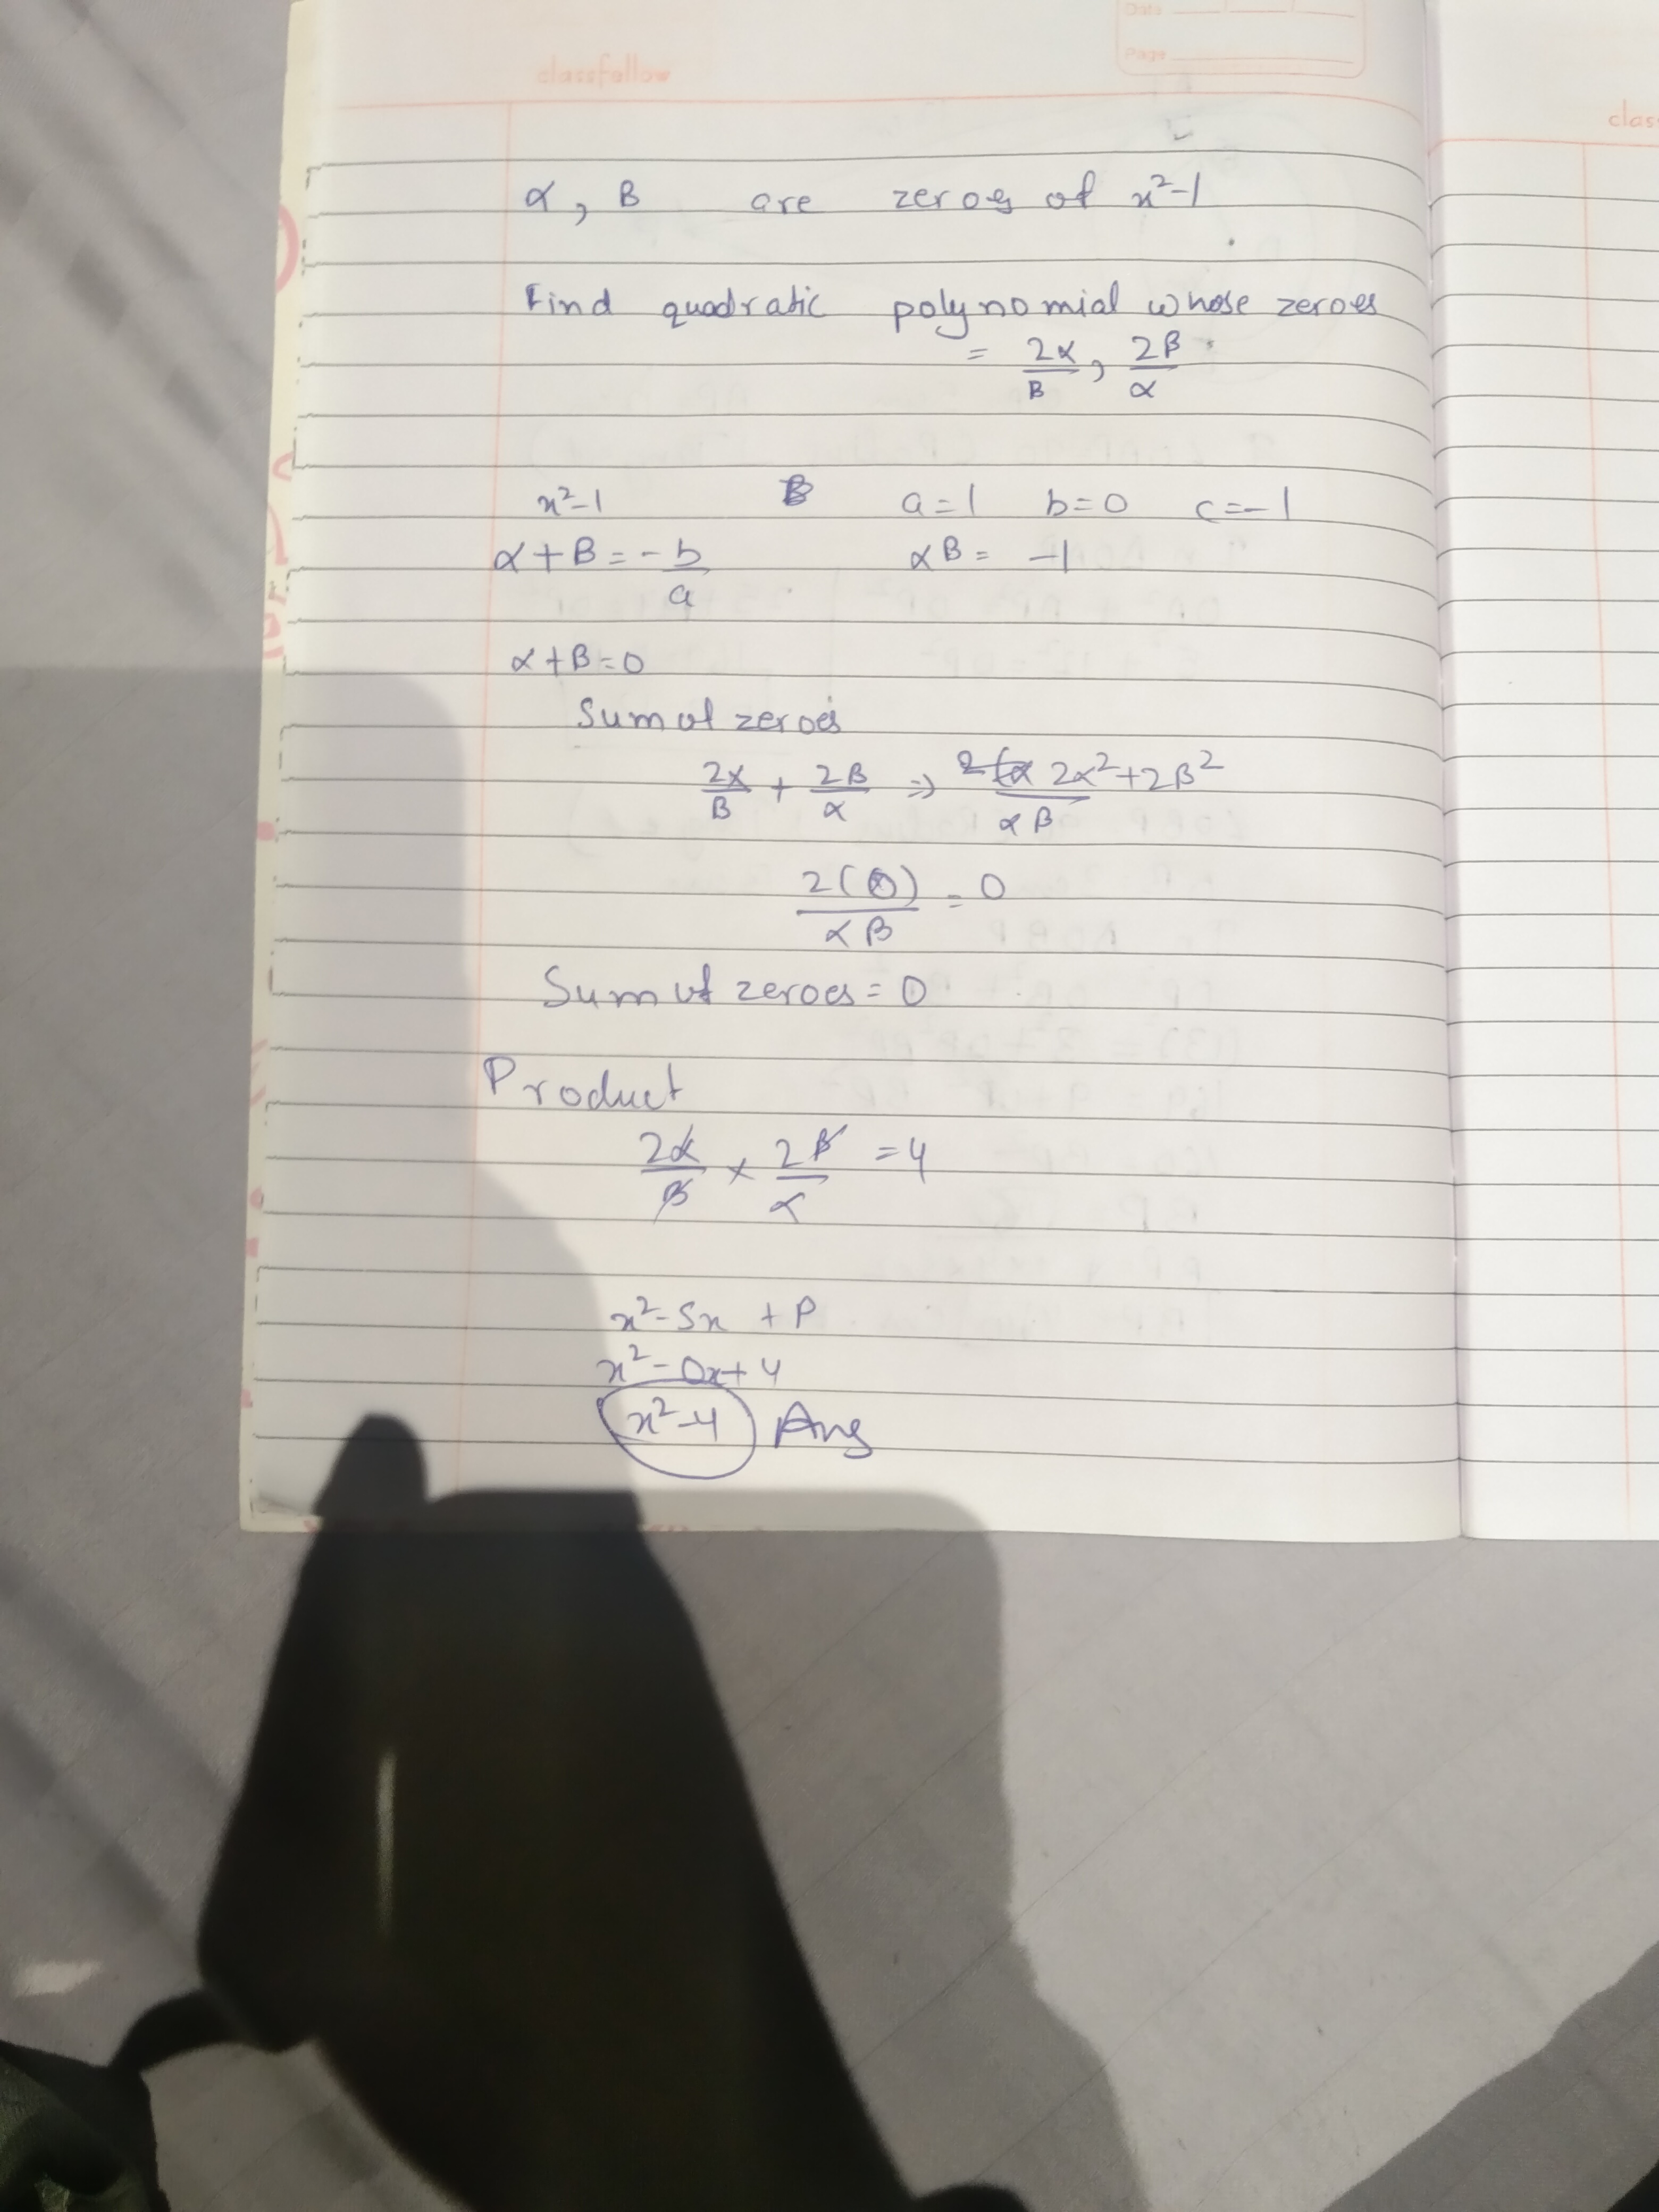 Date
Page
classfollow
clas
α, β are zeroes of x²-1
Find quadratic polynomial whose zeroes
= 2α/β, 2β/α
x²-1 a=1 b=0 c=-1
α+β=-b/a αβ= -1
α+β=0
Sum of zeroes
2α/β + 2β/α ⇒ 2α²+2β²/αβ
2(0)/αβ = 0
Sum of zeroes=0
Product
2α/β × 2β/α =4
x²-Sx+P
x²-0x+4
x²-4 Ans